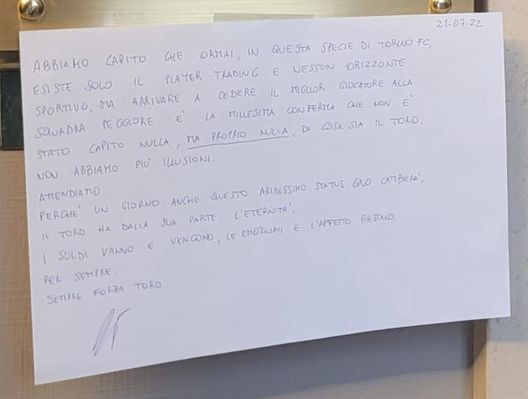 21.07.22
ABBIAMO CAPITO CHE ORMAI, IN QUESTA SPECIE DI TORINO FC,
ESISTE SOLO IL PLAYER TRADING E NESSUN ORIZZONTE
SPORTIVO, MA ARRIVARE A CEDERE IL MIGLIOR GIOCATORE ALLA
SQUADRA PEGGIORE È LA MILLESIMA CONFERMA CHE NON È
STATO CAPITO NULLA, MA PROPRIO NULLA, DI COSA SIA IL TORO.
NON ABBIAMO PIÙ ILLUSIONI.
ATTENDIAMO.
PERCHE' UN GIORNO ANCHE QUESTO ARIDISSIMO STATUS QUO CAMBIERÀ.
IL TORO HA DALLA SUA PARTE L'ETERNITA'.
I SOLDI VANNO E VENGONO, LE EMOZIONI E L'AFFETTO RESTANO.
PER SEMPRE.
SEMPRE FORZA TORO